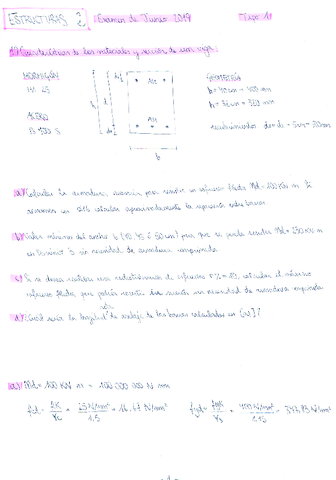 ESTRUCTURAS 2 Examen de Junio 2019 Tipo 1
1) Características de los materiales y sección de una viga:
HORMIGÓN
HA 25
ACERO
B 400 S
As₂
As₁
d
h
b
GEOMETRÍA
b = 40 cm = 400 mm
h = 56 cm = 560 mm
recubrimientos
a) Calcular la armadura necesaria para resistir un esfuerzo flector Md = 100 KN m. Si
calcular aproximadamente la separación entre barras.
b) Valor mínimo del ancho b para que se pueda resistir Md = 250 KN m
en dominio 3 sin necesidad de armadura comprimida.
c) Si se desea realizar una redistribución de esfuerzos calcular el máximo
esfuerzo flector que podría resistir la sección sin necesidad de armadura comprimida
d) ¿Cuál sería la longitud de anclaje de las barras calculadas en (a)?
a) Md = 100 KN m = 100 000 000 N mm
fcd = fck/γc = 25 N/mm²/1.5 = 16.67 N/mm² fyd = fyk/γs = 400 N/mm²/1.15 = 347.83 N/mm²
- 1 -